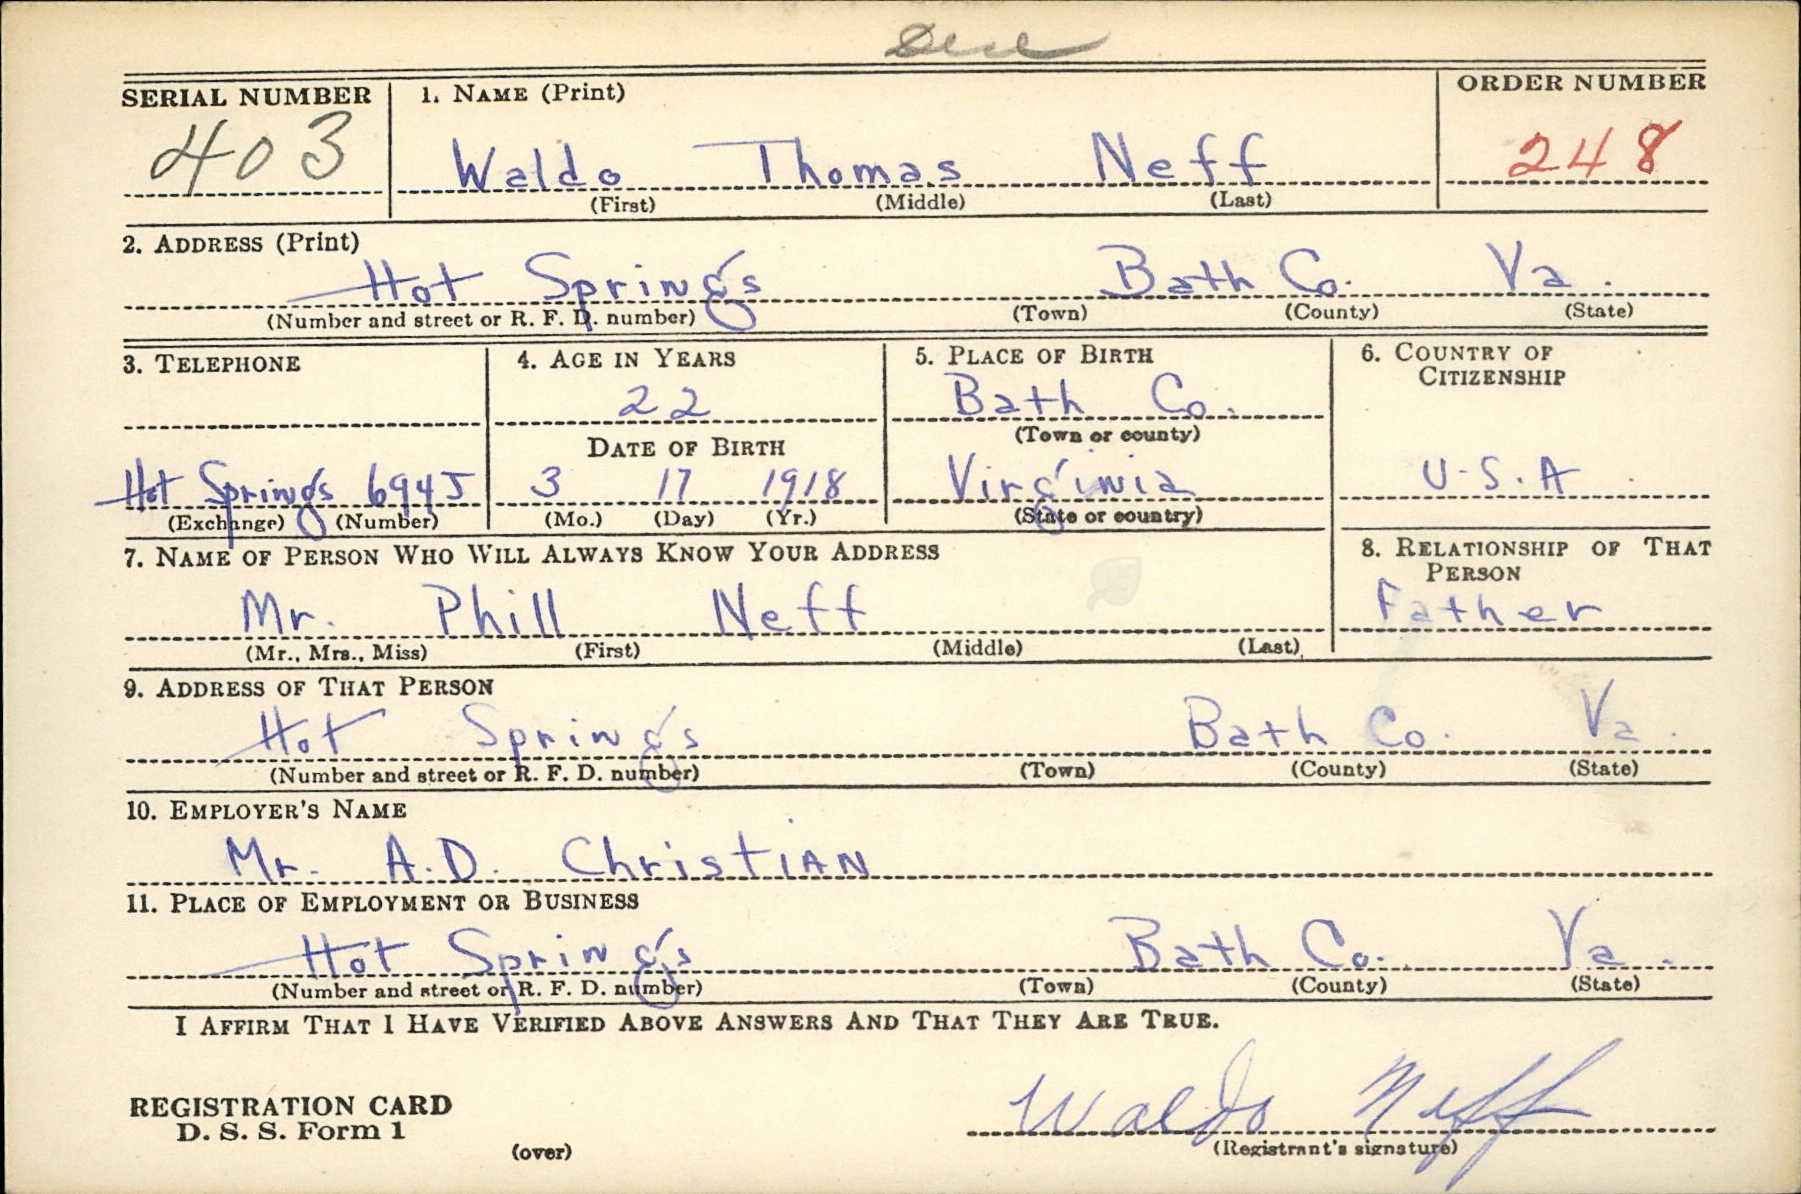 SERIAL NUMBER 1. NAME (Print) ORDER NUMBER
403 Waldo Thomas Neff 248
(First) (Middle) (Last)
2. ADDRESS (Print)
Hot Springs Bath Co. Va.
(Number and street or R. F. D. number) (Town) (County) (State)
3. TELEPHONE 4. AGE IN YEARS 5. PLACE OF BIRTH 6. COUNTRY OF
CITIZENSHIP
22 Bath Co.
(Town or county)
DATE OF BIRTH
Hot Springs 694J 3 17 1918 Virginia U.S.A
(Exchange) (Number) (Mo.) (Day) (Yr.) (State or country)
7. NAME OF PERSON WHO WILL ALWAYS KNOW YOUR ADDRESS 8. RELATIONSHIP OF THAT
PERSON
Mr. Phill Neff Father
(Mr., Mrs., Miss) (First) (Middle) (Last)
9. ADDRESS OF THAT PERSON
Hot Springs Bath Co. Va.
(Number and street or R. F. D. number) (Town) (County) (State)
10. EMPLOYER'S NAME
Mr. A.D. Christian
11. PLACE OF EMPLOYMENT OR BUSINESS
Hot Springs Bath Co. Va.
(Number and street or R. F. D. number) (Town) (County) (State)
I AFFIRM THAT I HAVE VERIFIED ABOVE ANSWERS AND THAT THEY ARE TRUE.
REGISTRATION CARD
D. S. S. Form 1
(over)
Waldo Neff
(Registrant's signature)